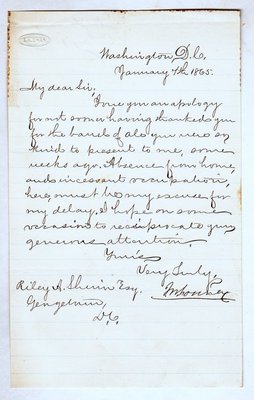 Washington D.C.
January 7th 1865.
My dear Sir,
I owe you an apology
for not sooner having thanked you
for the barrel of ale you were so
kind to present to me, some
weeks ago. Absence from home,
and incessant occupation,
here, must be my excuse for
my delay. I hope on some
occasion to reciprocate your
generous attention.
Yours
Very Truly,
Riley A. Shinn Esq.
Georgetown,
D.C.